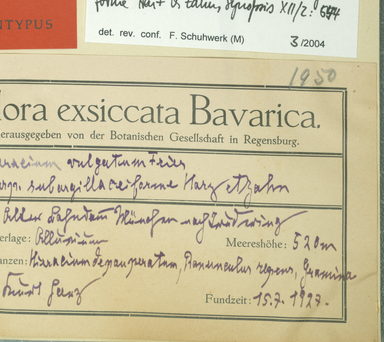 NTYPUS
forme Harz & Zahn, Synopsis XII/2: 
det. rev. conf. F. Schuhwerk (M) 3/2004
1950
lora exsiccata Bavarica.
erausgegeben von der Botanischen Gesellschaft in Regensburg.
eracium vulgatum Fries
subargillaceiforme Harz et Zahn
Alter Bahndamm München nach Trudering
erlage: Alluvium Meereshöhe: 520m
anzen: Hieracium depauperatum, Ranunculus repens, Gramina
Kurt Harz Fundzeit: 15.7.1927.